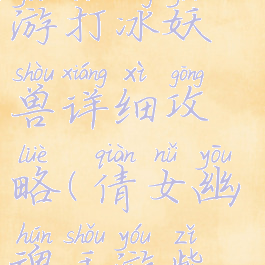 游打冰妖
shòu xiáng xì gōng
兽详细攻
lüè qiàn nǚ yōu
略(倩女幽
hún shǒu yóu zǐ
魂手游紫